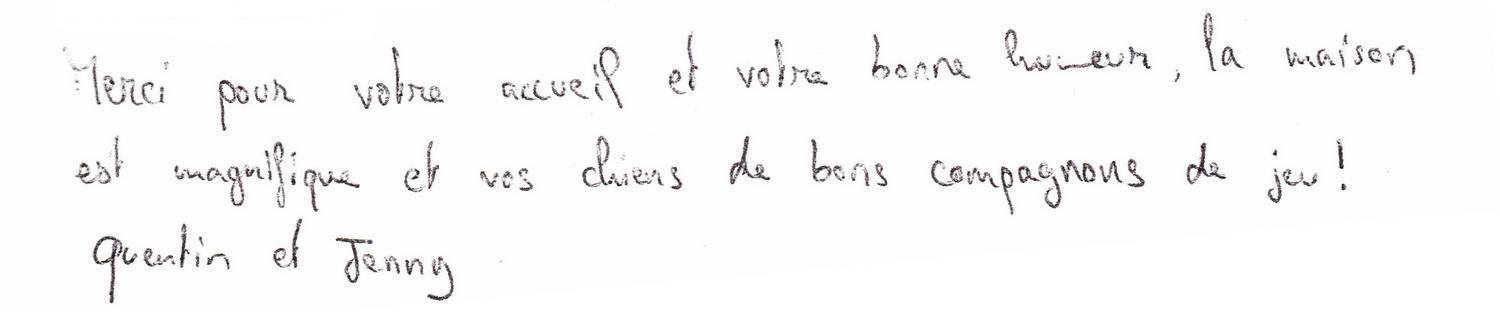 Merci pour votre accueil et votre bonne humeur, la maison
est magnifique et vos chiens de bons compagnons de jeu !
Quentin et Jenny